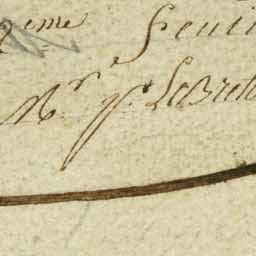 2eme feuil
Mr Je LeBret